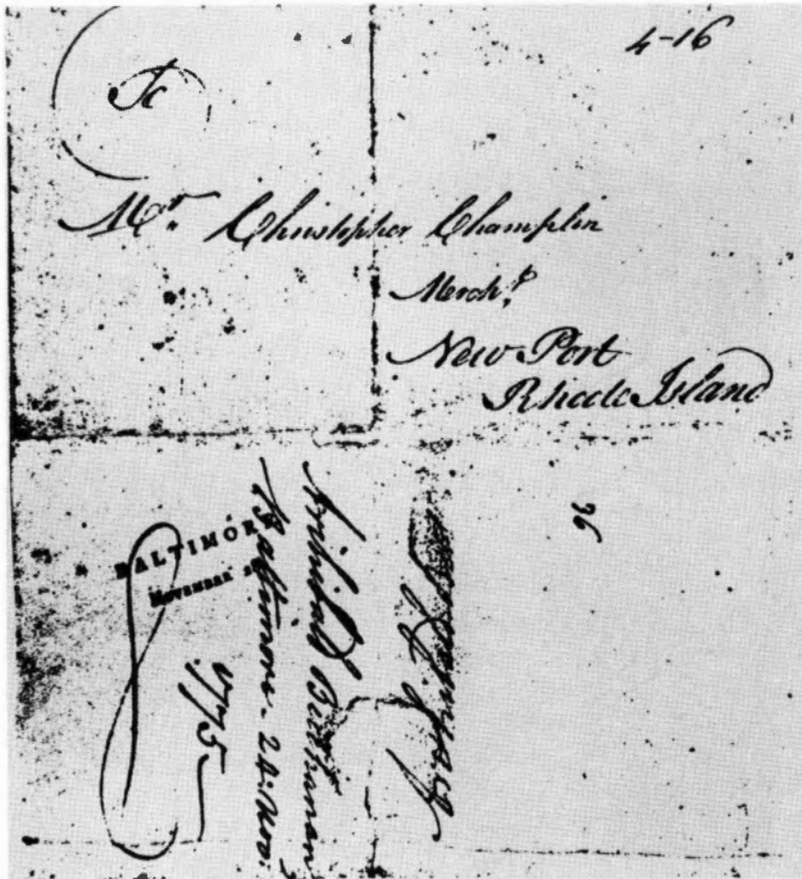 4-16
To
Mr. Christopher Champlin
Mercht.
New Port
Rhode Island
96
BALTIMORE
NOVEMBER
Archibald Buchanan
Baltimore - 24. Nov.
1775